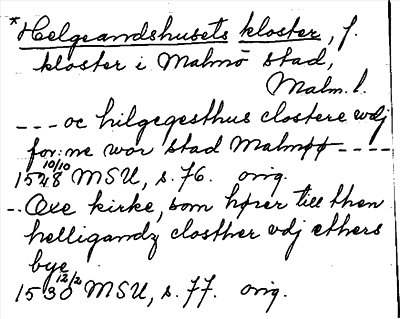 *Helgeandshusets kloster, f.
kloster i Malmö stad,
Malm. l.
--- oc hilgegesthus clostere wdj
for:ne wor stad Malmøø ----
1528 10/10 MSU, s. 76. orig.
-- Oxe kirke, som hører till then
helligandz closther vdj ethers
bye
1530 12/2 MSU, s. 77. orig.